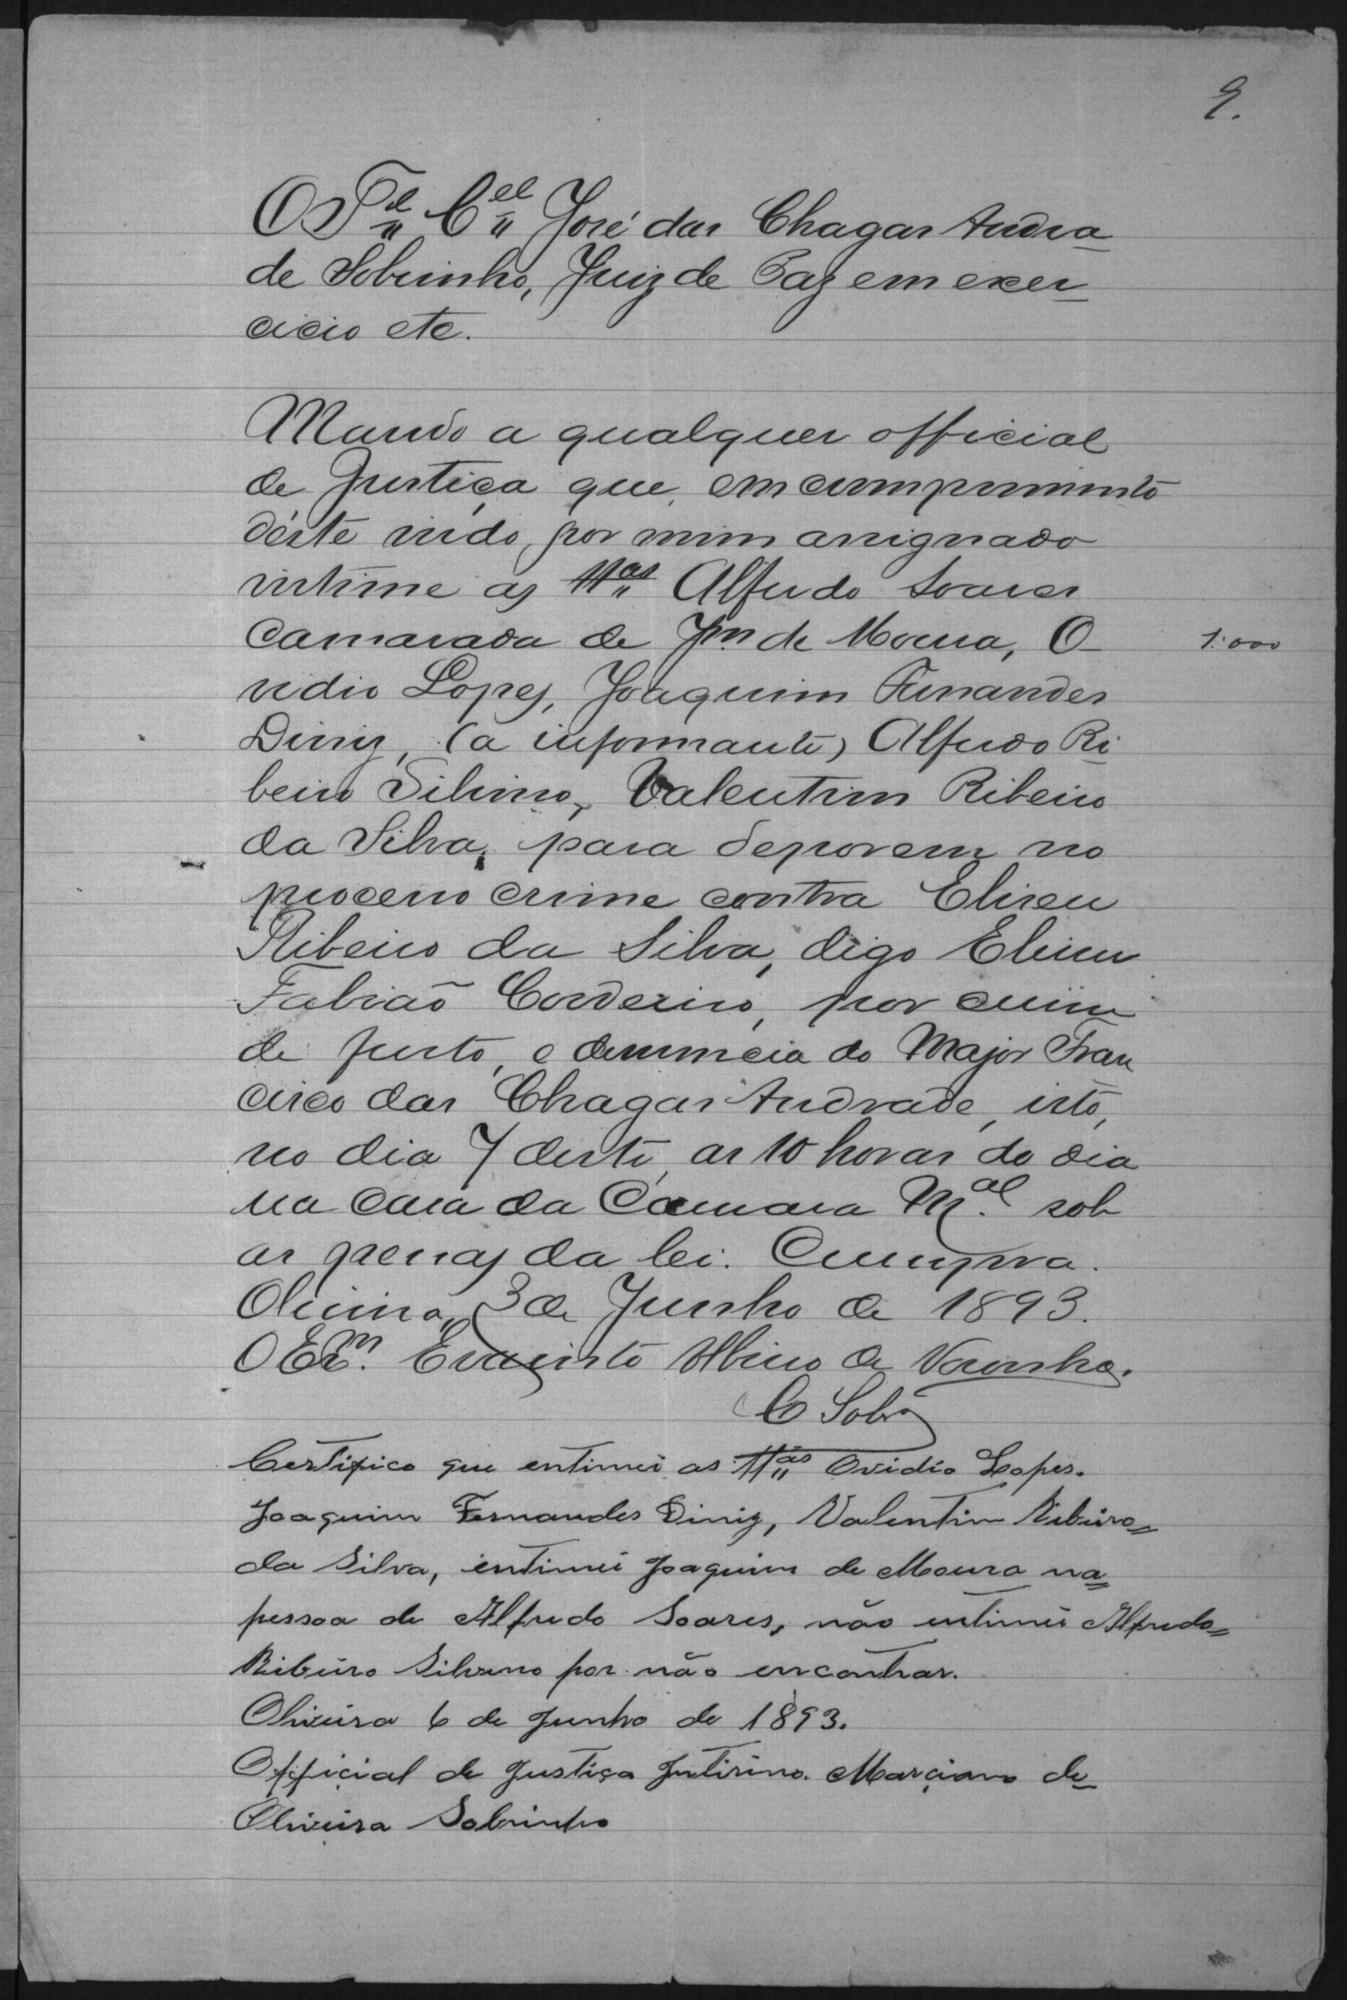 9.
O T.el C.el José das Chagas Andra-
de Sobrinho, Juiz de Paz em exer-
cicio etc.
Mando a qualquer official
de Justiça que, em cumprimento
déste indo por mim assignado
intime as ttas Alfredo Soares
camarada de Jm de Moura, O-
vidio Lopes, Joaquim Fernandes
Diniz, (a informante) Alfredo Ri-
beiro Silvino, Valentim Ribeiro
da Silva, para deporem no
processo crime contra Eliseu
Ribeiro da Silva, digo Eliseu
Fabião Cordeiro, por crime
de furto, e denuncia do Major Fran
cisco das Chagas Andrade, isto,
no dia 7 deste as 10 horas do dia
na casa da Camara M.al sob
as penas da lei. Cumpra.
Oliveira, 3 de Junho de 1893.
O Esm. Evaristo Albino de Noronha.
C Sobro
1:000
Certifico que entimei as ttas Ovidio Lopes.
Joaquim Fernandes Diniz, Valentim Ribeiro=
da Silva, entimei Joaquim de Moura na=
pessoa de Alfredo Soares, não entimei Alfredo=
Ribeiro Silvino por não encontrar.
Oliveira 6 de Junho de 1893.
Official de Justiça Intirino. Marciano de
Oliveira Sobrinho